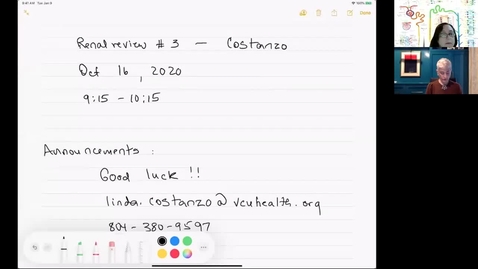 Renal review #3 — Costanzo
Oct 16, 2020
9:15 - 10:15
Announcements :
Good luck !!
linda.costanzo@vcuhealth.org
804-380-9597